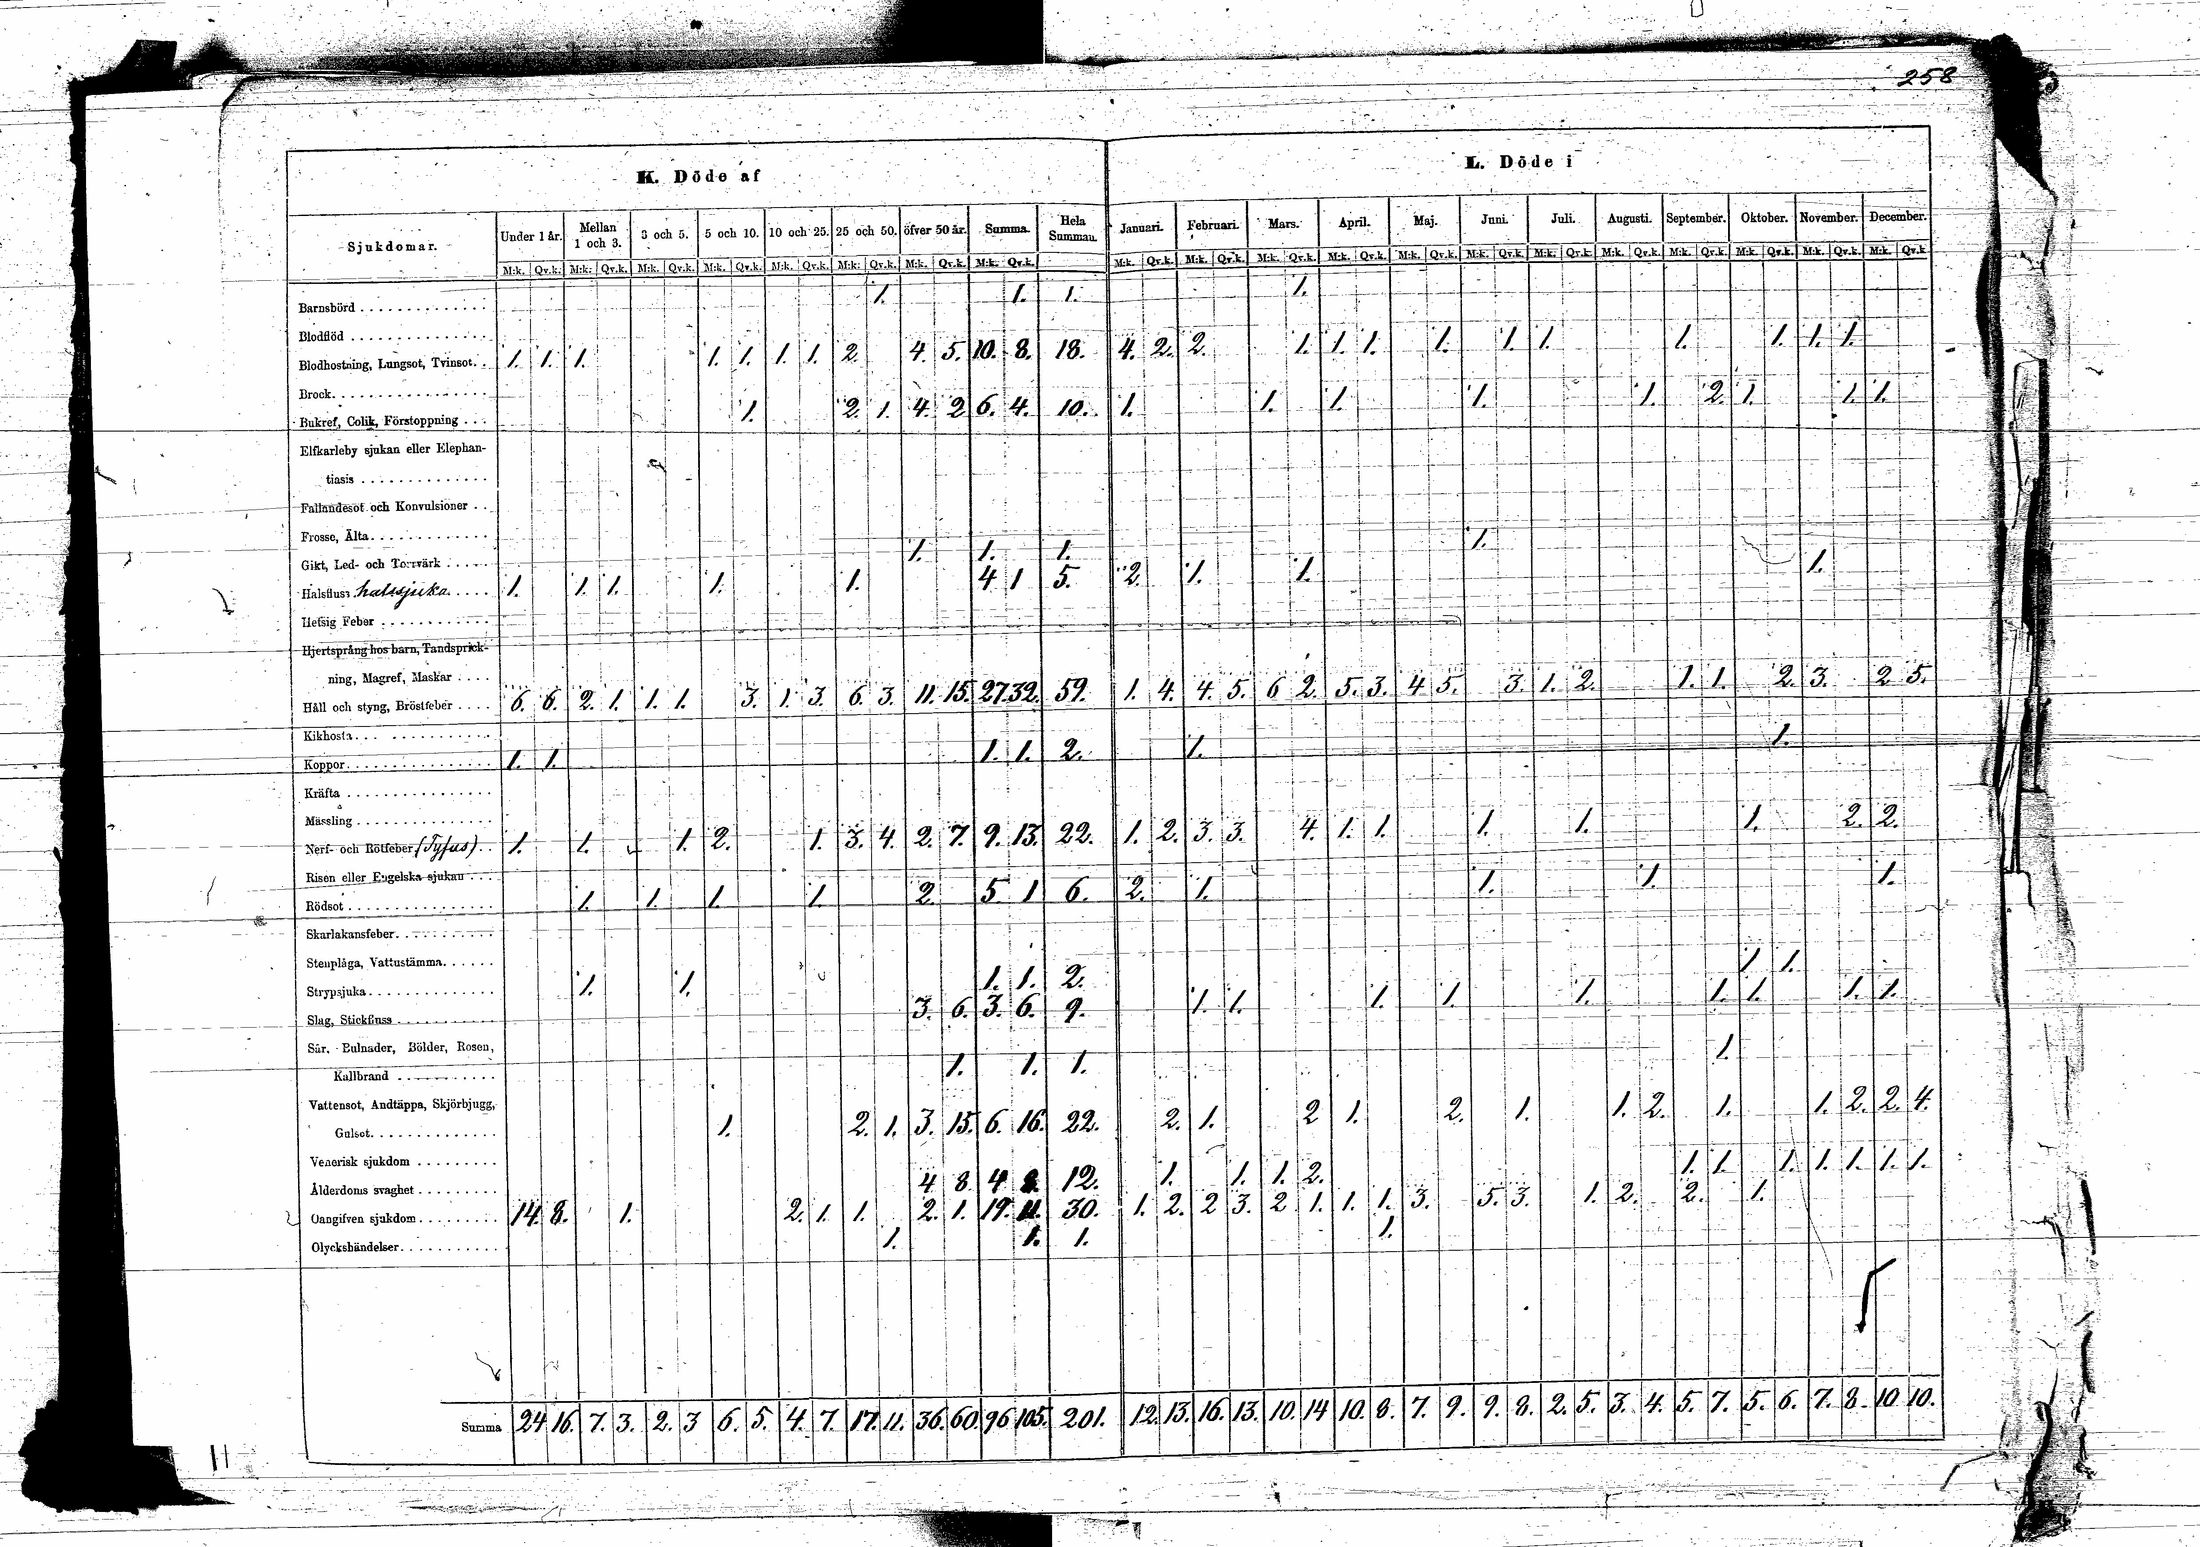 258
K. Döde af
L. Döde i
Sjukdomar. Under 1 år. Mellan 1 och 3. 3 och 5. 5 och 10. 10 och 25. 25 och 50. öfver 50 år. Summa. Hela Summan. Januari. Februari. Mars. April. Maj. Juni. Juli. Augusti. September. Oktober. November. December.
M:k. Qv.k. M:k. Qv.k. M:k. Qv.k. M:k. Qv.k. M:k. Qv.k. M:k. Qv.k. M:k. Qv.k. M:k. Qv.k. M:k. Qv.k. M:k. Qv.k. M:k. Qv.k. M:k. Qv.k. M:k. Qv.k. M:k. Qv.k. M:k. Qv.k. M:k. Qv.k. M:k. Qv.k. M:k. Qv.k. M:k. Qv.k. M:k. Qv.k.
Barnsbörd 1. 1. 1. 1.
Blodflöd
Blodhostning, Lungsot, Tvinsot. 1. 1. 1. 1. 1. 1. 1. 2. 4. 5. 10. 8. 18. 4. 2. 2. 1. 1. 1. 1. 1. 1. 1. 1. 1. 1.
Brock
Bukref, Colik, Förstoppning 1. 2. 1. 4. 2 6. 4. 10. 1. 1. 1. 1. 1. 2. 1. 1. 1.
Elfkarleby sjukan eller Elephan-
tiasis
Fallandesot och Konvulsioner
Frosse, Älta
Gikt, Led- och Torrvärk 1. 1. 1. 1.
Halsfluss halssjuka 1. 1. 1. 1. 1. 4 1 5. 2. 1. 1. 1.
Hetsig Feber
Hjertsprång hos barn, Tandsprick-
ning, Magref, Maskar
Håll och styng, Bröstfeber 6. 6. 2. 1. 1. 1. 3. 1. 3. 6. 3. 11. 15. 27 32. 59. 1. 4. 4. 5. 6 2. 5. 3. 4 5. 3. 1. 2. 1. 1. 2. 3. 2 5.
Kikhosta
Koppor 1. 1. 1. 1. 2. 1. 1.
Kräfta
Mässling
Nerf- och Rötfeber (Tyfus) 1. 1. 1. 2. 1. 3. 4. 2. 7. 9. 13. 22. 1. 2. 3. 3. 4. 1. 1. 1. 1. 1. 2. 2.
Risen eller Engelska sjukan
Rödsot 1. 1. 1. 1. 2. 5 1 6. 2. 1. 1. 1. 1.
Skarlakansfeber
Stenplåga, Vattustämma
Strypsjuka 1. 1. 1. 1. 2. 1. 1.
Slag, Stickfluss 3. 6. 3. 6. 9. 1. 1. 1. 1. 1. 1. 1. 1. 1.
Sår, Bulnader, Bölder, Rosen,
Kallbrand 1. 1. 1. 1.
Vattensot, Andtäppa, Skjörbjugg,
Gulsot 1. 2. 1. 3. 15. 6. 16. 22. 2. 1. 2 1. 2. 1. 1. 2. 1. 1. 2. 2. 4.
Venerisk sjukdom
Ålderdoms svaghet 4 8. 4 8. 12. 1. 1. 1. 2. 1. 1. 1. 1. 1. 1. 1.
Oangifven sjukdom 14. 8. 1. 2. 1. 1. 2. 1. 19. 11. 30. 1. 2. 2 3. 2 1. 1. 1. 3. 5. 3. 1. 2. 2. 1.
Olyckshändelser 1. 1. 1. 1.
Summa 24 16. 7. 3. 2. 3 6. 5. 4. 7. 17. 11. 36. 60. 96 105. 201. 12. 13. 16. 13. 10. 14 10. 8. 7. 9. 9. 8. 2. 5. 3. 4. 5. 7. 5. 6. 7. 8. 10 10.